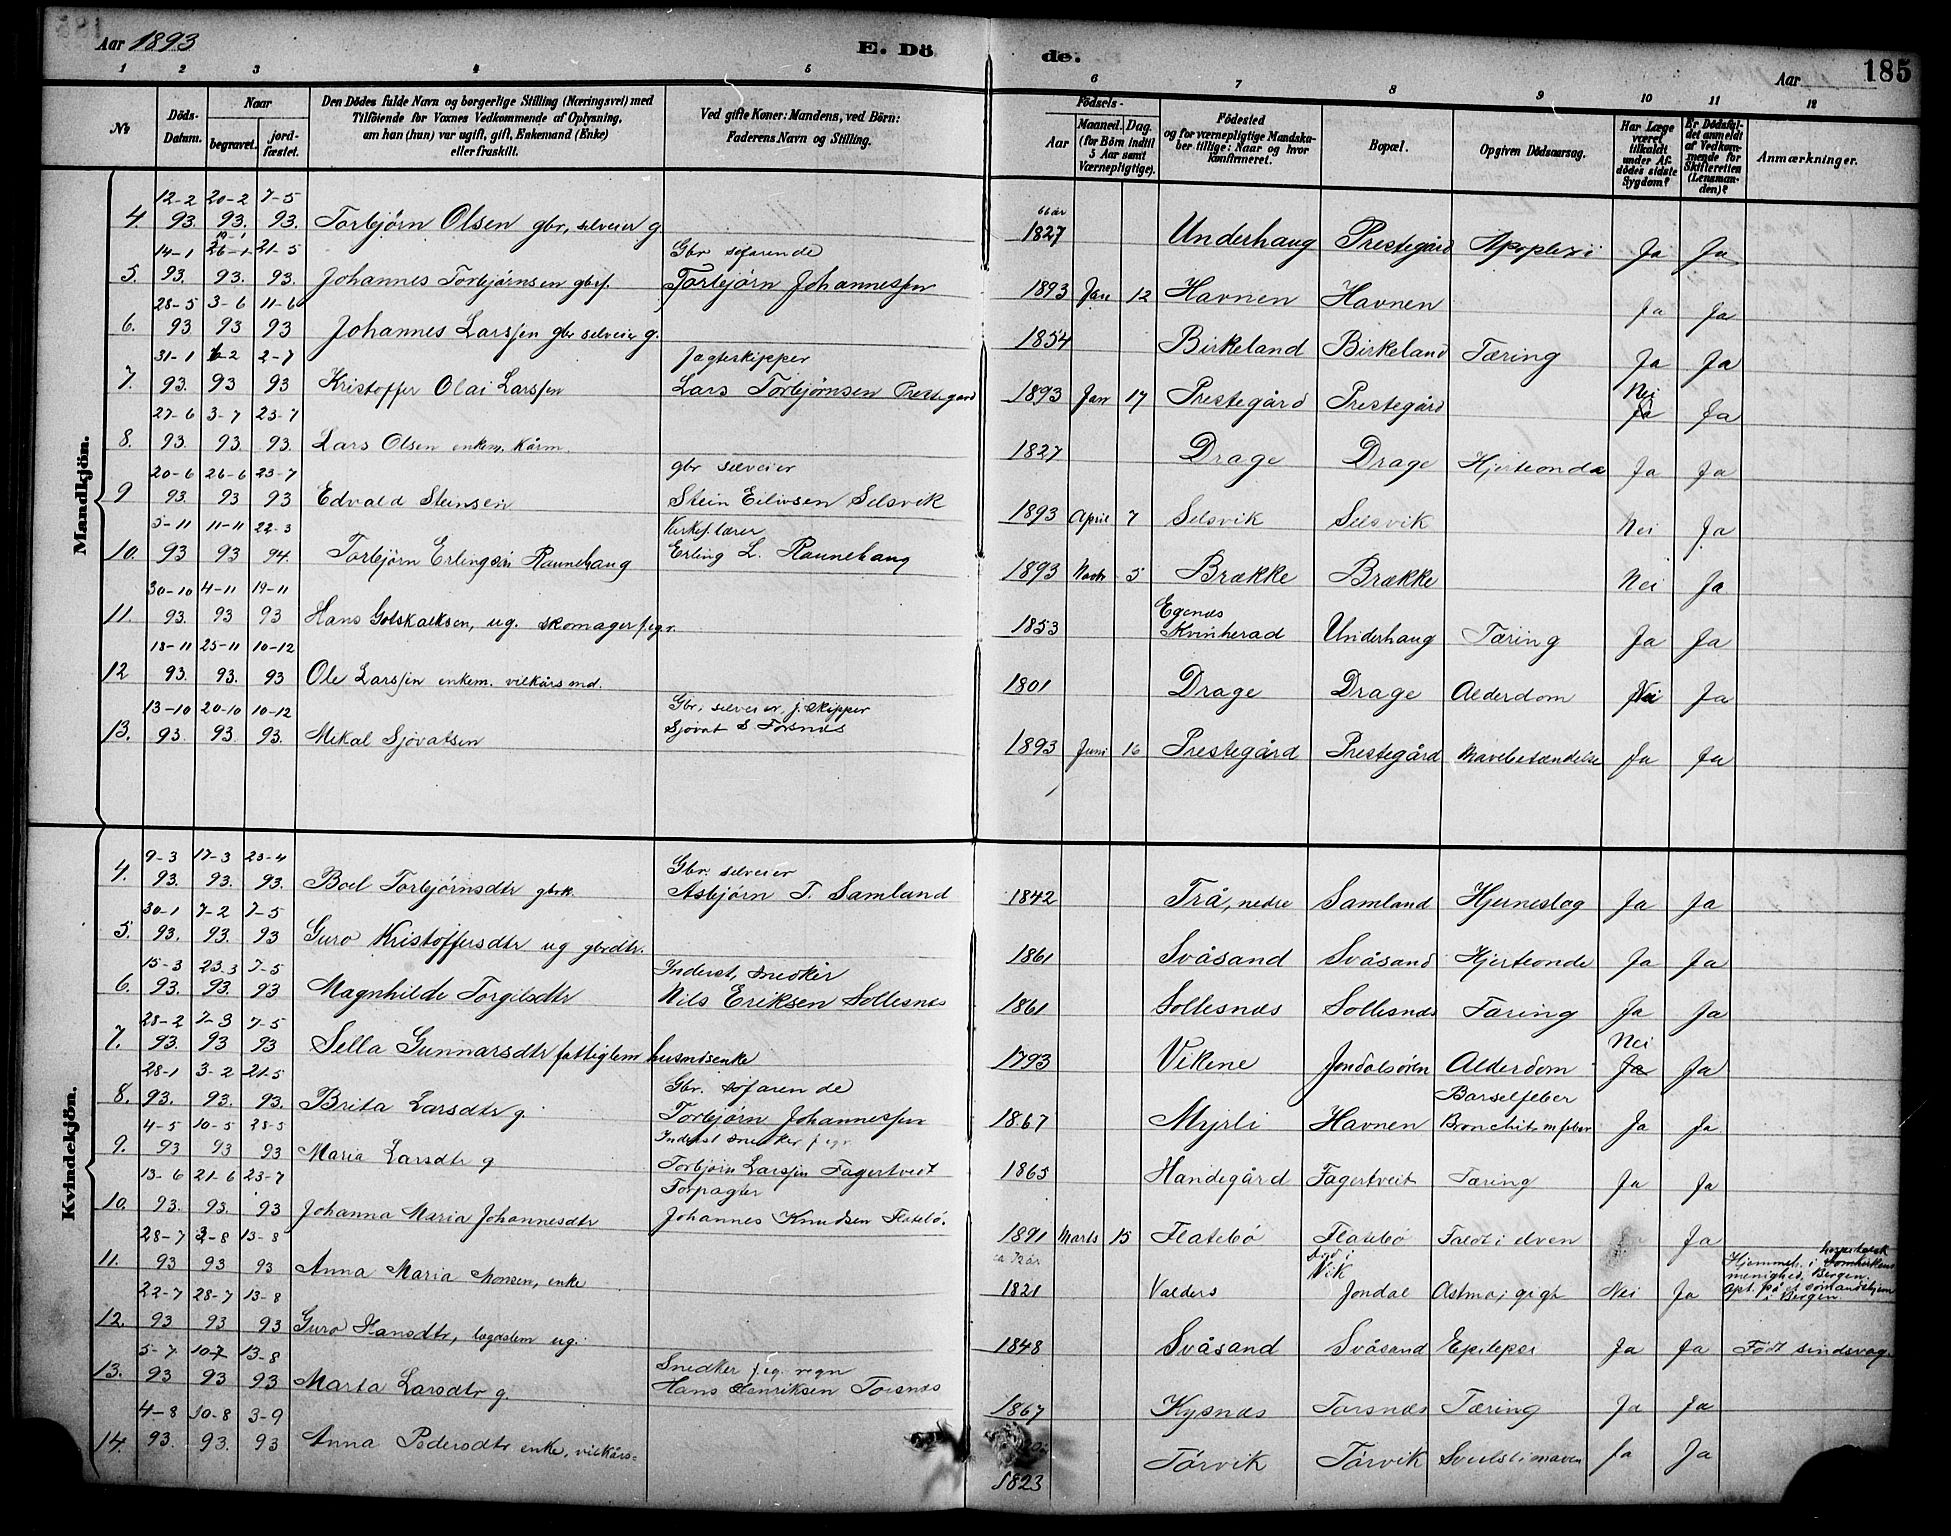 Aar 1893
E. Dö
de.
Aar
185
1 2 3 4 5 6 7 8 9 10 11 12
No
Döds-Datum.
Naar
begravet.
jord-fæstet.
Den Dödes fulde Navn og borgerlige Stilling (Næringsvei) med
Tilföiende for Voxnes Vedkommende af Oplysning,
om han (hun) var ugift, gift, Enkemand (Enke)
eller fraskilt.
Ved gifte Koner: Mandens, ved Börn:
Faderens Navn og Stilling.
Födsels-
Aar
Maaned. Dag.
(for Börn indtil
5 Aar samt
Værnepligtige).
Födested
og for værnepligtige Mandska-
ber tillige: Naar og hvor
konfirmeret.
Bopæl.
Opgiven Dödsaarsag.
Har Læge
været
tilkaldt
under Af-
dödes sidste
Sygdom?
Er Dödsfal-
det anmeldt
af Vedkom-
mende for
Skifteretten
(Lensman-
den)?
Anmærkninger.
Mandkjön.
12-2 20-2 7-5
4. 93. 93. 93. Torbjörn Olsen gbr, selveier g. 66 år 1827 Underhaug Prestegård Apoplexi Ja Ja
14-1 26-1 21-5 Gbr söfarende
5. 93. 93. 93. Johannes Torbjörnsen gbrs. Torbjörn Johannessen 1893 Jan 12 Havnen Havnen Ja Ja
28-5 3-6 11-6
6. 93 93 93 Johannes Larssen gbr selveier g. 1854 Birkeland Birkeland Tæring Ja Ja
31-1 2-7 Jagteskipper
7. 93. 93 93 Kristoffer Olai Larssen Lars Torbjörnsen Prestegård 1893 Jan 17 Prestegård Prestegård Nei Ja Ja
27-6 3-7 23-7
8. 93. 93. 93. Lars Olsen enkem. kårm. 1827 Drage Drage Hjerteonde Ja Ja
20-6 26-6 23-7 gbr selveier
9 93. 93 93 Edvald Steinsen Stein Eilivsen Selsvik 1893 April 7 Selsvik Selsvik Nei Ja
5-11 11-11 22-3 Kirkes. lærer
10. 93 93 94. Torbjörn Erlingsön Raunehaug Erling L. Raunehaug 1893 Novbr 5 Brække Brække Nei Ja
30-10 4-11 19-11
11. 93. 93 93 Hans Gotskalksen, ug. skomager f. eg. r. 1853 Egenæs Kvinherad Underhaug Tæring Ja Ja
18-11 25-11 10-12
12 93. 93. 93 Ole Larssen enkem. vilkårsmd. 1801 Drage Drage Alderdom Nei Ja
13-10 20-10 10-12 Gbr, selveier, j. skipper
13. 93. 93. 93. Mikal Sjövatsen Sjovat S Torsnæs 1893 Juni 16 Prestegård Prestegård Mavebetændelse Ja Ja
Kvindekjön.
9-3 17-3 23-4 Gbr. selveier
4. 93. 93. 93. Boel Torbjörnsdtr gbrk. Asbjörn T. Samland 1842 Trå, nedre Samland Hjerneslag Ja Ja
30-1 7-2 7-5
5. 93. 93. 93 Guro Kristoffersdtr ug gbrdtr. 1861 Svåsand Svåsand Hjerteonde Ja Ja
15-3 23-3 7-5 Inderst, snedker
6. 93. 93. 93 Magnhilde Torgilsdtr Nils Eriksen Sollesnæs 1861 Sollesnæs Sollesnæs Tæring Ja Ja
28-2 7-3 7-5
7. 93. 93 93 Sella Gunnarsdtr fattiglem husmdsenke 1793 Vikene Jondalsören Alderdom Nei Ja Ja
28-1 3-2 21-5 Gbr. söfarende
8. 93. 93. 93. Brita Larsdtr g. Torbjörn Johannessen 1867 Myrli Havnen Barselfeber Bronchit m feber Ja Ja
4-5 10-5 28-5 Inderst snedker f. egr.
9. 93 93 93 Maria Larsdtr g Torbjörn Larssen Fagertveit 1865 Handegård Fagertveit Tæring Ja Ja
13-6 21-6 23-7 Forpagter
10. 93. 93. 93 Johanna Maria Johannesdtr Johannes Knudsen Flatebö. 1891 Marts 15 Flatebö Flatebö Faldt i elven Ja
28-7 2-8 13-8
11. 93 93 93 Anna Maria Monsen, enke ca 72 år 1821 Valders död i Vik Jondal Astma, gigt Nei Ja Hjemmeh. i Domkirkens menighed, Bergen. Opt. på et sömandshjem i Bergen
22-7 28-7 13-8
12. 93 93 93 Guro Hansdtr, legdslem ug. 1848 Svåsand Svåsand Epilepsi Ja Ja Född sindsvag
5-7 10-7 13-8 Snedker f. eg. regn
13. 93 93 93 Marta Larsdtr g. Hans Henriksen Torsnæs 1867 Kysnæs Torsnæs Tæring Ja Ja
4-8 10-8 3-9
14. 93. 93. 93 Anna Pedersdtr enke, vilkårs= 1823 Törvik Törvik Svulst i maven Ja Ja